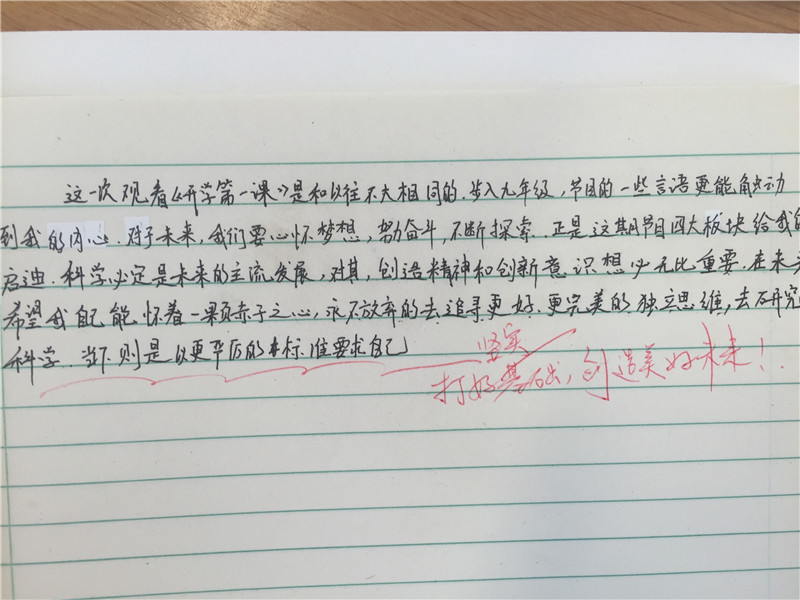 这一次观看《开学第一课》是和以往不大相同的.步入九年级,节目的一些言语更能触动
到我的内心.对于未来,我们要心怀梦想,努力奋斗,不断探索.正是这期节目四大板块给我的
启迪.科学必定是未来的主流发展,对其,创造精神和创新意识想必无比重要.在未来
希望我自己能怀着一颗赤子之心,永不放弃的去追寻更好.更完美的独立思维,去研究
科学.当下则是以更严厉的目标准要求自己
坚实
打好基础,创造美好未来!